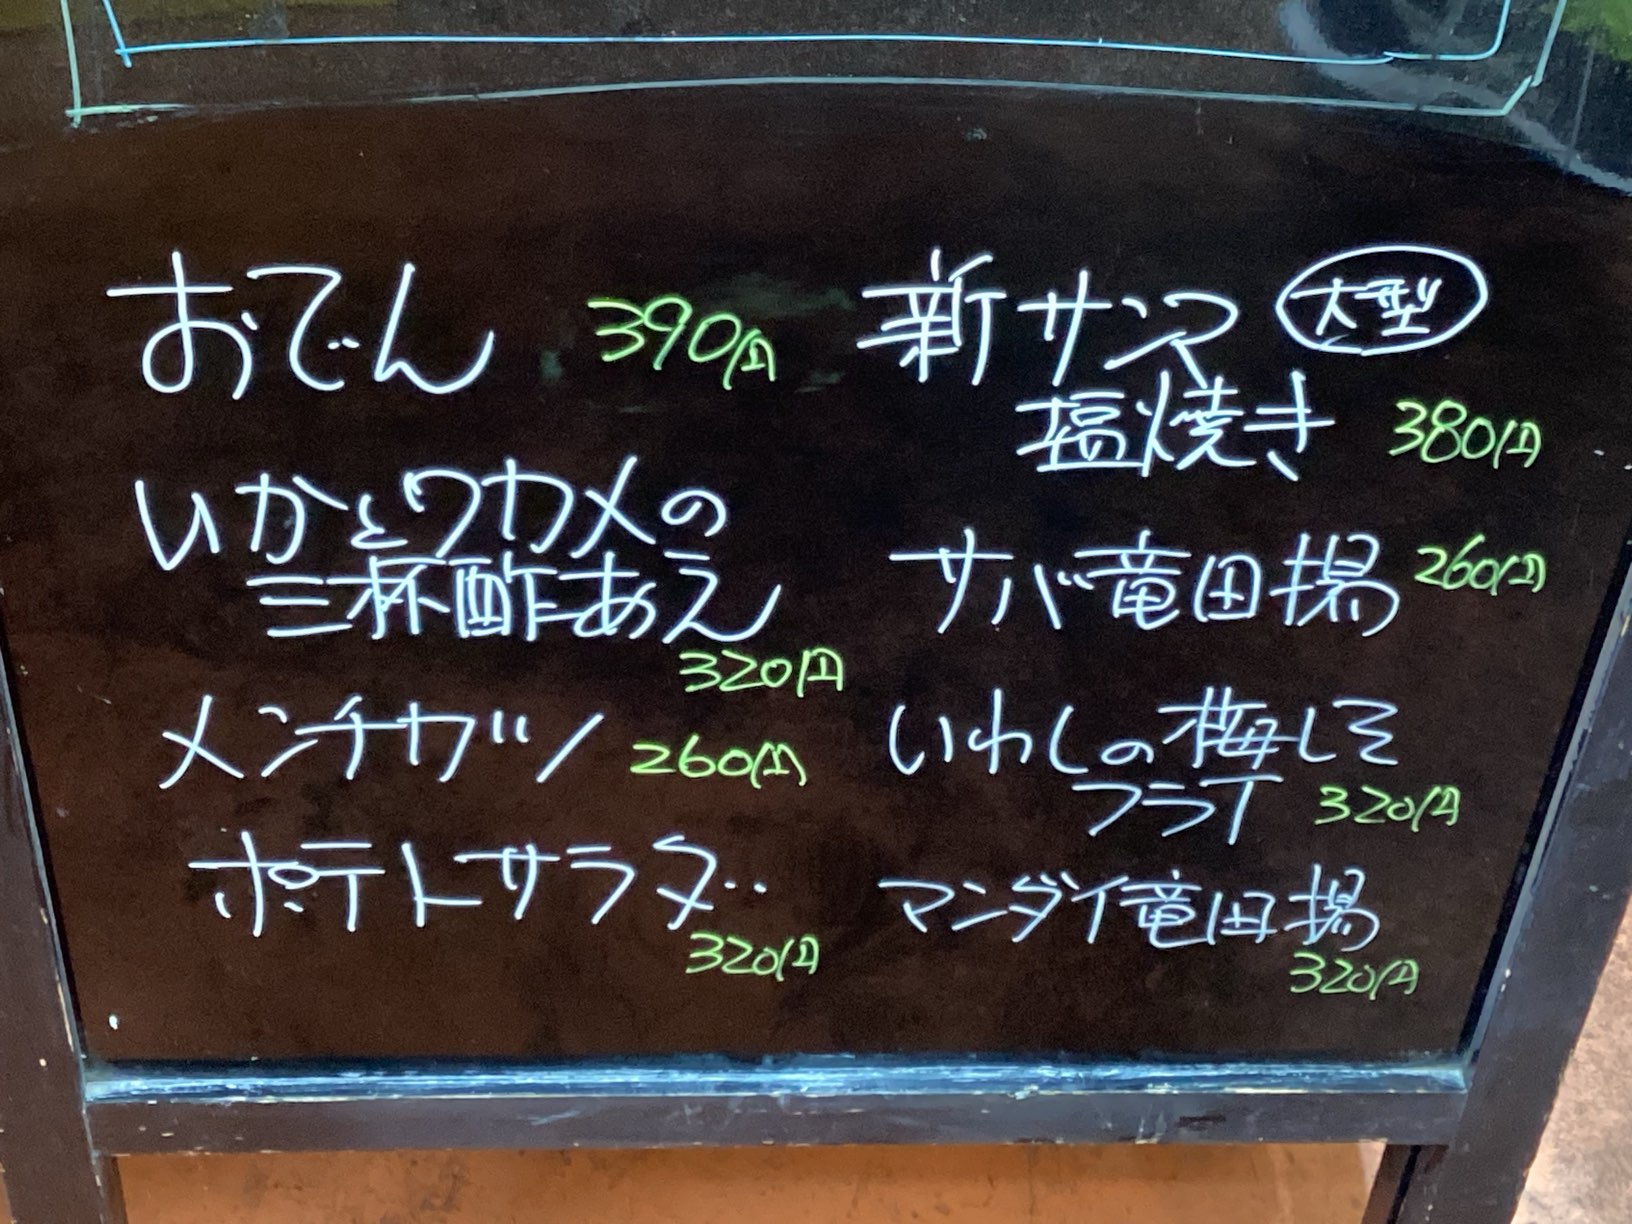 おでん 390円
いかとワカメの
三杯酢あえ
320円
メンチカツ 260円
ポテトサラダ
320円
新サンマ 大型
塩焼き 380円
サバ竜田揚 260円
いわしの梅しそ
フライ 320円
マンダイ竜田揚
320円